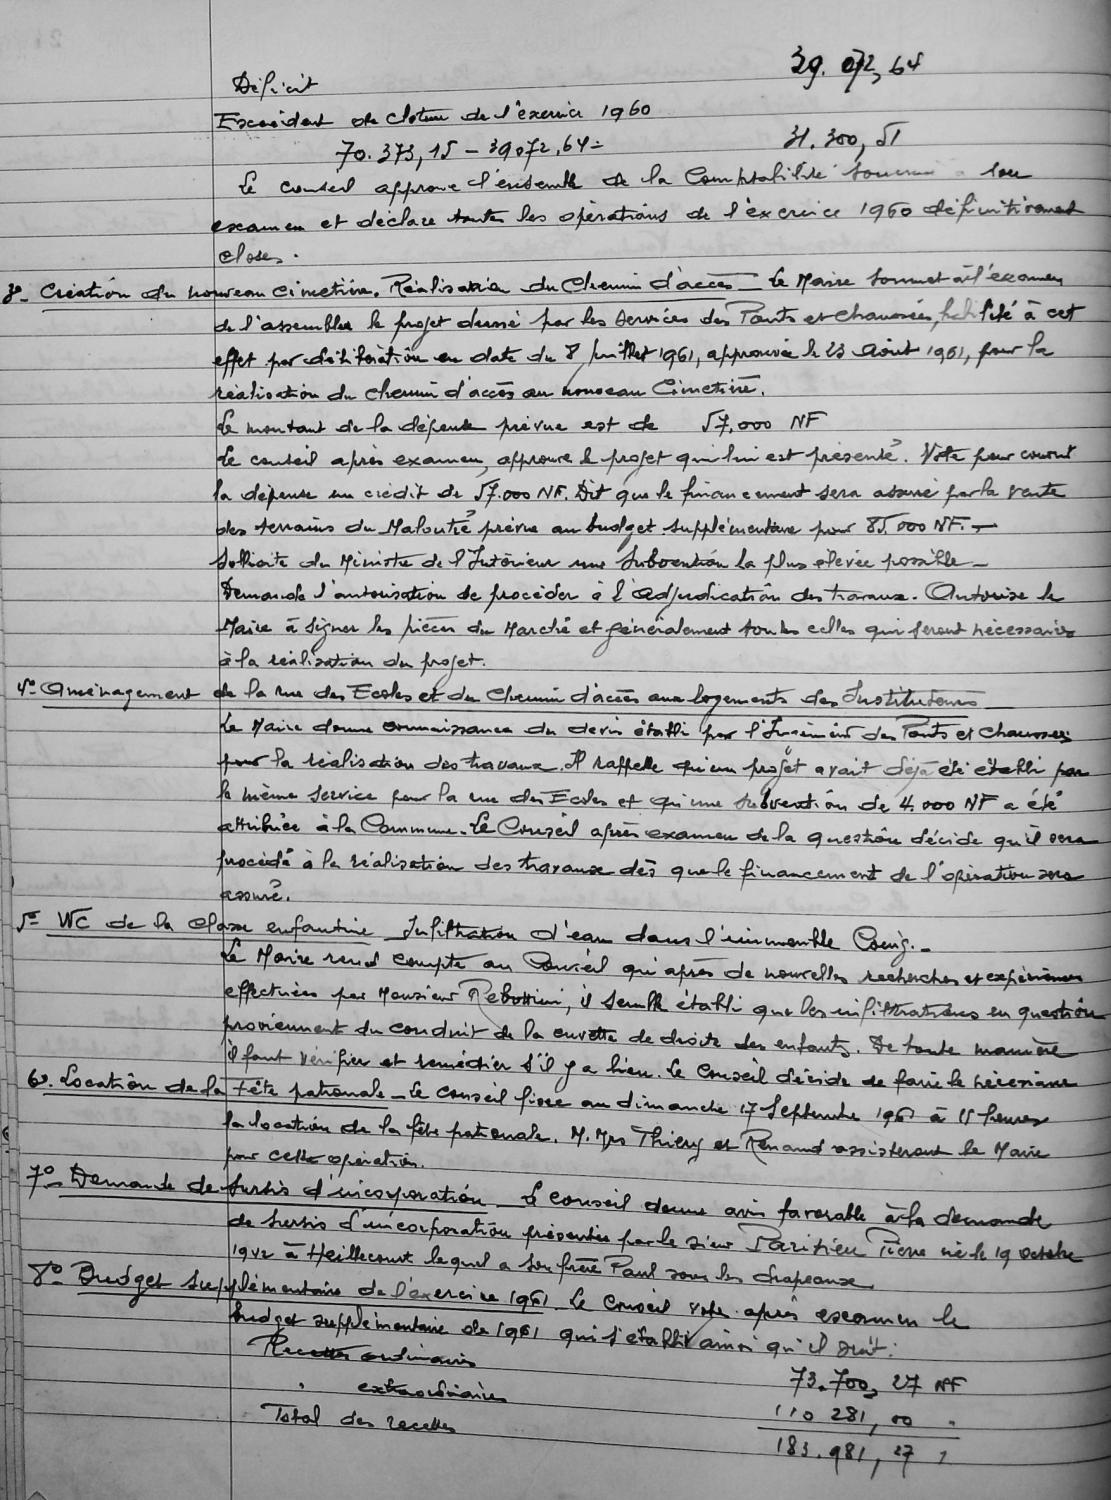 Déficit 39.072,64
Excédent de cloture de l'éxercice 1960
70.373,15 - 39072,64 = 31.300,51
Le conseil approuve l'ensemble de la Comptabilité soumise à son
examen et déclare toutes les opérations de l'éxercice 1960 définitivement
closes.
3°- Création du nouveau Cimetière. Réalisation du Chemin d'accès - Le Maire soumet à l'examen
de l'assemblée le projet dressé par les services des Ponts et Chaussées, habilité à cet
effet par délibération en date du 8 juillet 1961, approuvée le 23 août 1961, pour la
réalisation du chemin d'accès au nouveau Cimetière.
Le montant de la dépense prévue est de 57.000 NF
Le conseil après examen, approuve le projet qui lui est présenté. Vote pour couvrir
la dépense un crédit de 57.000 NF. Dit que le financement sera assuré par la vente
des terrains du prévue au budget supplémentaire pour 85.000 NF. -
Sollicite du Ministre de l'Intérieur une subvention la plus elevée possible -
Demande l'autorisation de procéder à l'adjudication des travaux. Autorise le
Maire à signer les pièces du Marché et généralement toutes celles qui seront nécessaires
à la réalisation du projet.
4°- Aménagement de la rue des Ecoles et du Chemin d'accès aux logements des Instituteurs
Le Maire donne connaissance du devis établi par l'Ingénieur des Ponts et Chaussées
pour la réalisation des travaux. Il rappelle qu'un projet avait déjà été établi par
le même service pour la rue des Ecoles et qu'une subvention de 4.000 NF a été
attribuée à la Commune. Le Conseil après examen de la question décide qu'il sera
procédé à la réalisation des travaux dès que le financement de l'opération sera
assuré.
5°- WC de la classe enfantine - Infiltration d'eau dans l'immeuble -
Le Maire rend compte au Conseil qu'après de nouvelles recherches et expériences
effectuées par Monsieur Rebottini, il semble établi que les infiltrations en question
proviennent du conduit de la cuvette de droite des enfants. De toute manière
il faut vérifier et remédier s'il y a lieu. Le Conseil décide de faire le nécessaire
6°. Location de la fête patronale - Le Conseil fixe au dimanche 17 Septembre 1961 à 11 heures
la location de la fête patronale. M. Mrs Thiery et Renaud assisteront le Maire
pour cette opération.
7°- Demande de sursis d'incorporation - Le Conseil donne avis favorable à la demande
de sursis d'incorporation présentée par le sieur Parisien Pierre né le 19 octobre
1942 à Heillecourt lequel a son frère Paul sous les drapeaux
8°- Budget supplémentaire de l'exercice 1961 Le Conseil vote après examen le
budget supplémentaire de 1961 qui s'établit ainsi qu'il suit:
Recettes ordinaires 73.700,27 NF
" extraordinaires 110 281,00 "
Total des recettes 183.981,27 "